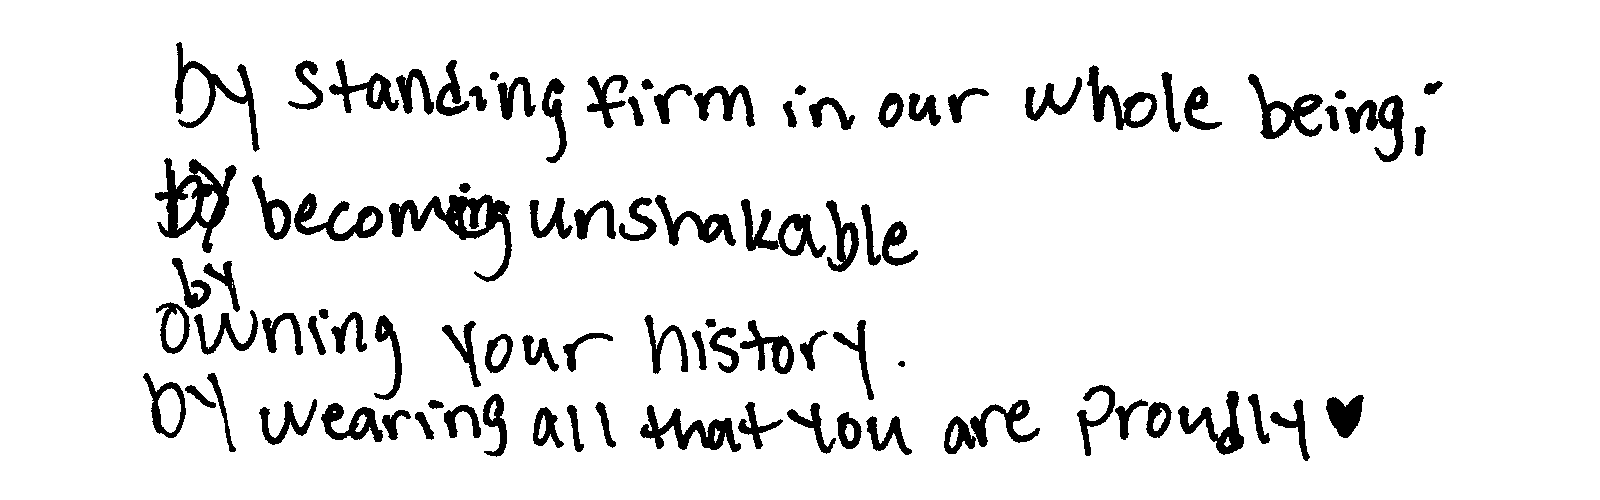 by standing firm in our whole being,
by becoming unshakable
by
owning your history.
by wearing all that you are proudly ♥